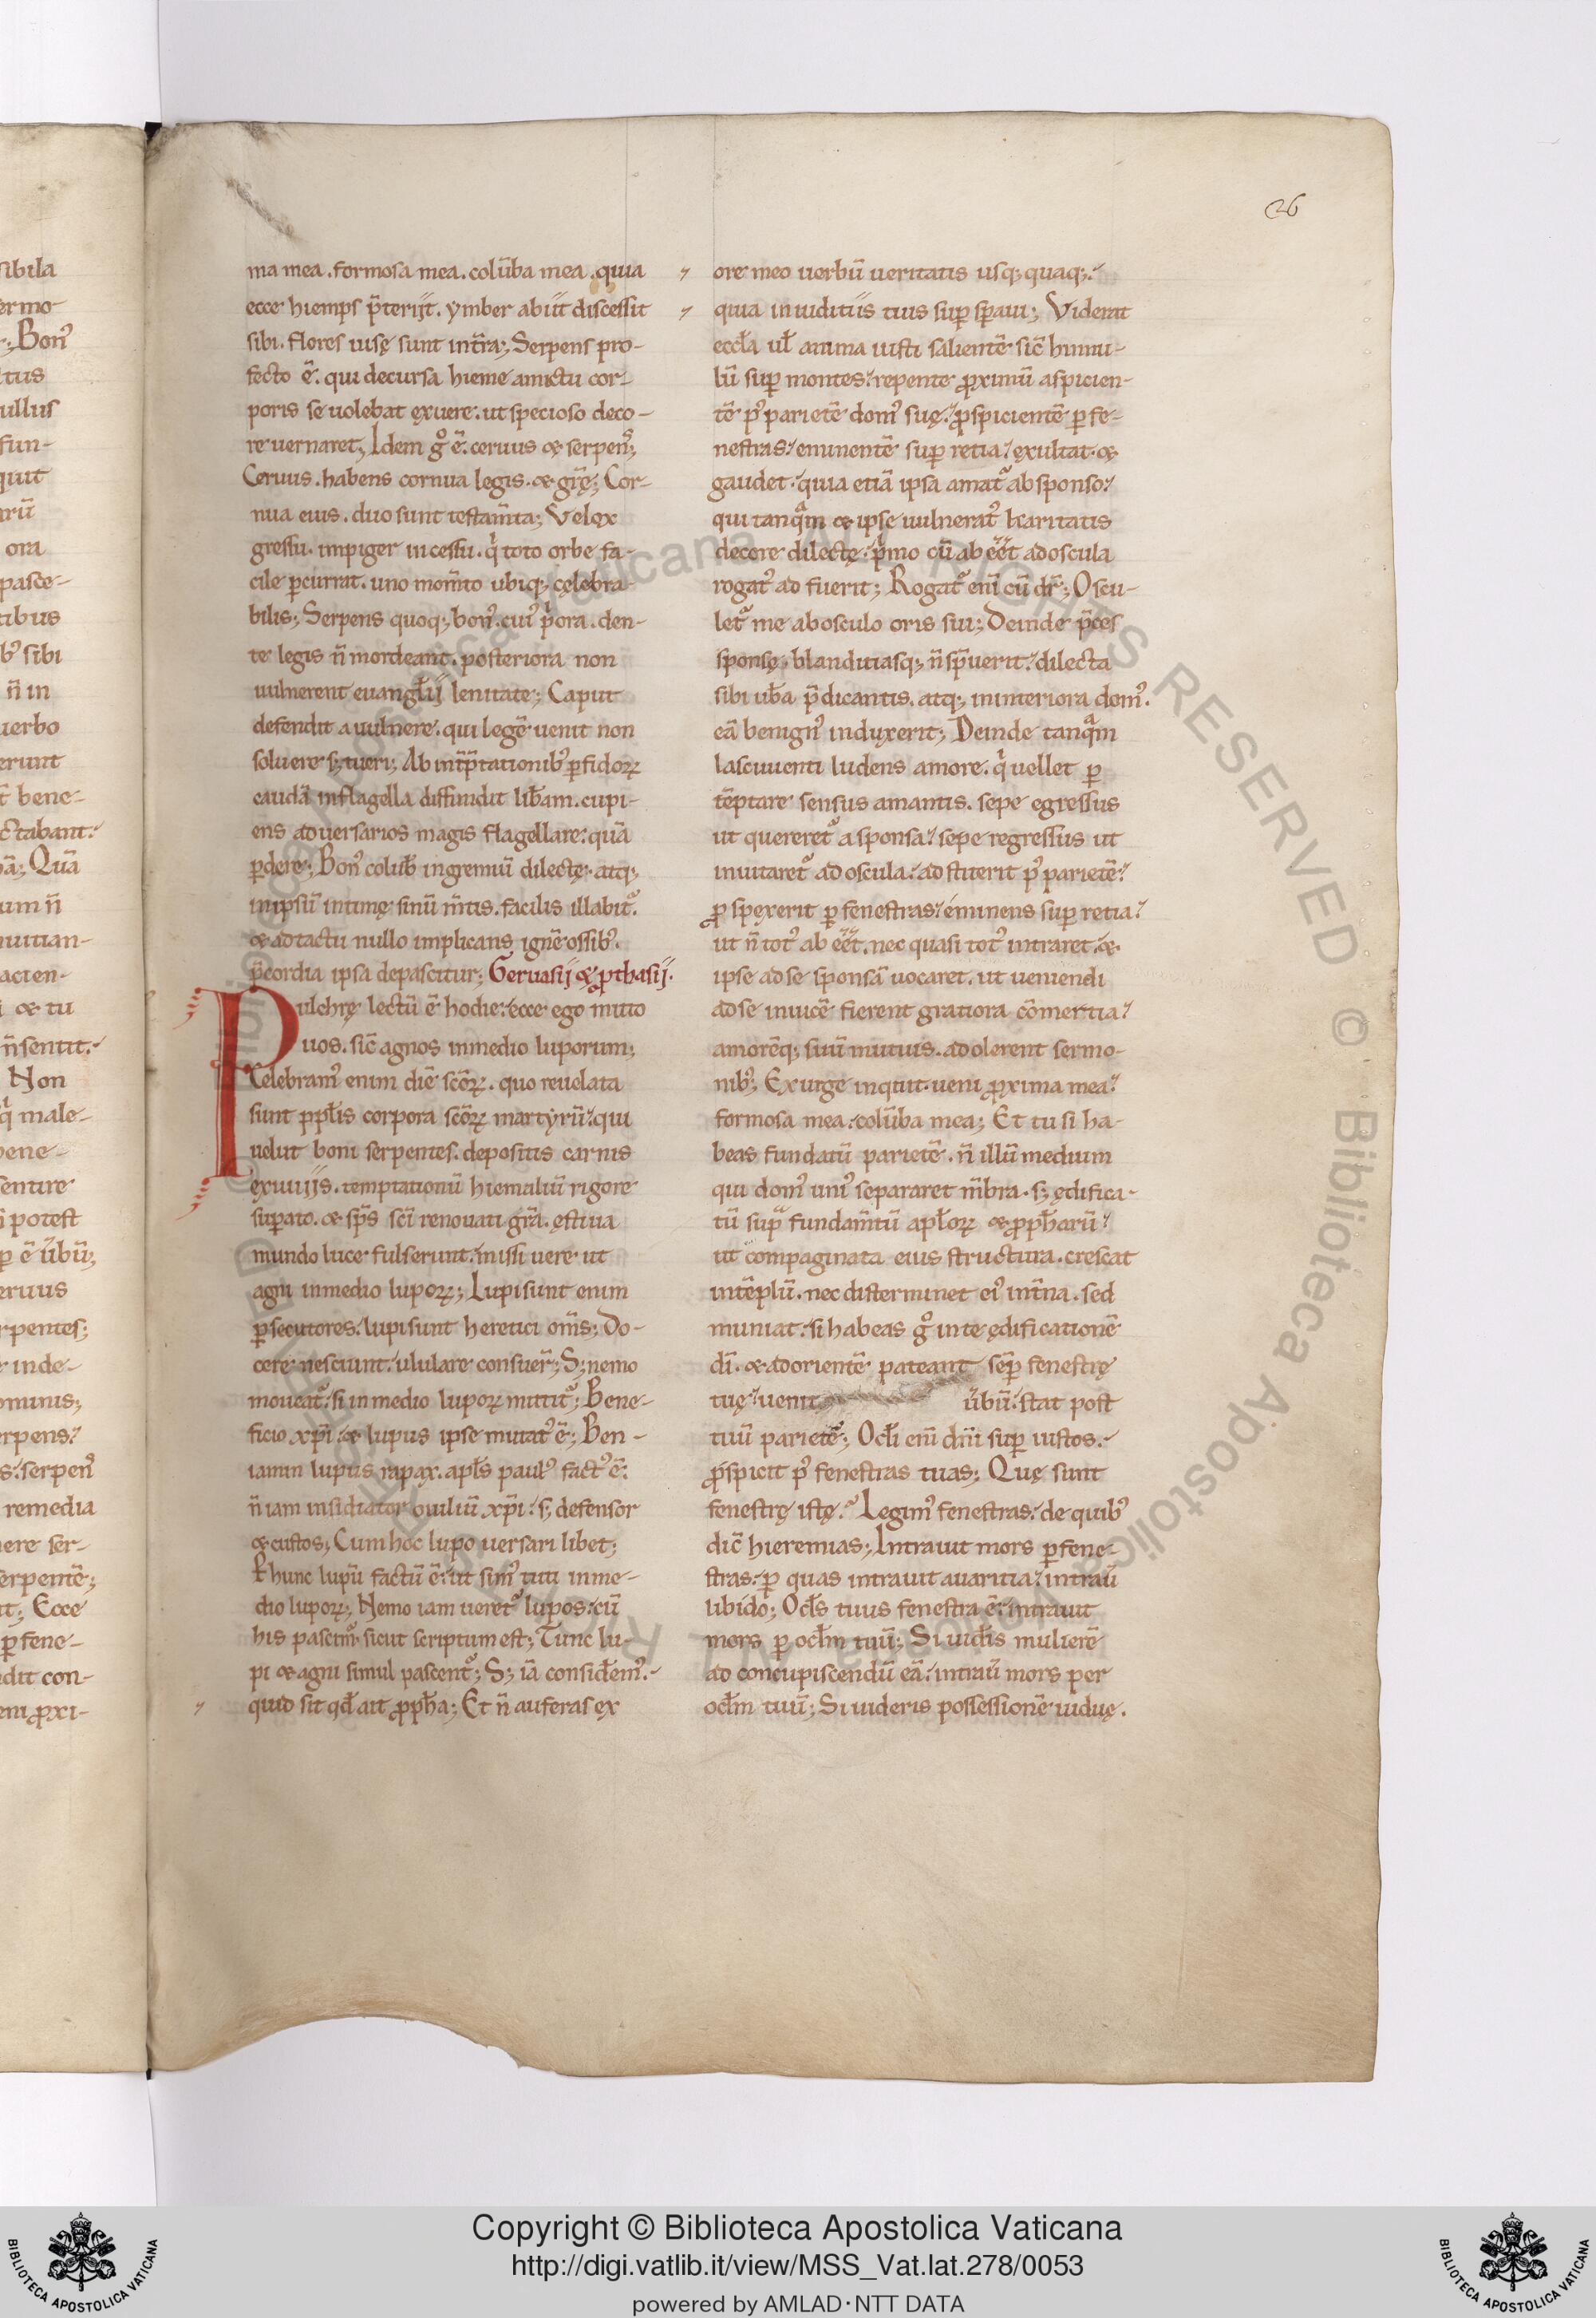 26
ma mea. formosa mea. colūba mea. quia
ecce hiemps p̄teriit. ymber abiit discessit
sibi. flores uisę sunt int̄ra; Serpens pro-
fecto ē. qui decursa hieme amictu cor-
poris se uolebat ęxuere. ut specioso deco-
re uernaret; Idem gͦ ē. ceruus & serpens;
Ceruus. habens cornua legis. & gr̄ę; Cor-
nua eius. duo sunt testam̄ta; Velox
gressu. impiger incessu. qͥ toto orbe fa-
cile ꝑcurrat. uno mom̄to ubiq; cęlebra-
bilis; Serpens quoq; bonꝰ. cuiꝰ pͥora. den-
te legis n̄ mordeant. posteriora non
uulnerent euangl̄ii lenitate; Caput
defendit a uulnere. qui legē uenit non
soluere s; tueri; Ab int̄p̄tationibꝰ ꝑfidoꝝ
caudā inflagella diffindit lib̄am. cupi-
ens aduersarios magis flagellare. quā
ꝑdere; Bonꝰ colub̄ ingremiū dilectę. atq;
inipsū intimę sinū m̄tis. facilis illabit᷑.
& adtactu nullo implicans ignē ossibꝰ.
p̄cordia ipsa depascitur; Geruasii & ꝓthasii.
Pulchrę lectū ē hodie. ecce ego mitto
uos. sic̄ agnos inmedio luporum;
Celebramꝰ enim diē sc̄oꝝ. quo reuelata
sunt ppl̄is corpora sc̄oꝝ martyrū. qui
uelut boni serpentes. depositis carnis
ęxuuiis. temptationū hiemaliū rigore
suꝑato. & sp̄s sc̄i renouati gr̄a. ęstiua
mundo luce fulserunt. missi uere ut
agni inmedio lupoꝝ; Lupi sunt enim
ꝑsecutores. lupi sunt heretici om̄s; Do-
cere nesciunt. ululare consuer̄; S; nemo
moueat᷑. si in medio lupoꝝ mittit᷑; Bene-
ficio xp̄i. & lupus ipse mutatꝰ ē; Ben-
iamin lupus rapax. apl̄s paulꝰ factꝰ ē.
n̄ iam insidiator ouiliū xp̄i. s; defensor
& custos; Cum hoc lupo uersari libet;
hunc lupū factū ē. ut simꝰ tuti inme-
dio lupoꝝ; Nemo iam ueret᷑ lupos. cū
his pascim᷑. sicut scriptum est; Tunc lu-
pi & agni simul pascent᷑; S; iā consid̄emꝰ.
quid sit qd̄ ait ꝓph̄a; Et n̄ auferas ex
ore meo uerbū ueritatis usq; quaq;.
quia iniuditiis tuis suꝑ sp̄aui; Viderat
eccl̄a ul̄ anima iusti salientē sic̄ hinnu-
lū suꝑ montes. repente ꝓximū aspicien-
tē pꝰ parietē domꝰ suę. ꝓspicientē ꝑ fe-
nestras. eminentē suꝑ retia. ęxultat. &
gaudet. quia etiā ipsa amat᷑ absponso.
qui tanqᷓm & ipse uulneratꝰ karitatis
decore dilectę. pͥmo cū abeēt adoscula
rogatꝰ ad fuerit; Rogat᷑ eni̅ cū dr̄; Oscu-
let᷑ me abosculo oris sui; Deinde p̄ces
sponsę. blanditiasq; n̄ sp̄uerit. dilecta
sibi ub̄a p̄dicantis. atq; ininteriora domꝰ.
eā benignꝰ induxerit; Deinde tanqᷓm
lasciuienti ludens amore. qͥ uellet ꝑ
tēptare sensus amantis. sepe egressus
ut quereret᷑ asponsa. sepe regressus ut
inuitaret᷑ adoscula. adstiterit pꝰ parietē.
ꝓspęxerit ꝑ fenestras. eminens suꝑ retia.
ut n̄ totꝰ abeēt. nec quasi totꝰ intraret. &
ipse adse sponsā uocaret. ut ueniendi
adse inuicē fierent gratiora cōmertia.
amorēq; suū mutuis. adolerent sermo-
nibꝰ; Exurge inquit. ueni ꝓxima mea.
formosa mea. colūba mea; Et tu si ha-
beas fundatū parietē. n̄ illū medium
qui domꝰ uniꝰ separaret m̄bra. s; ędifica-
tū supᷓ fundam̄tū apl̄oꝝ & ꝓph̄arū.
ut compaginata eius structura. crescat
intēplū. nec disterminet eiꝰ int̄na. sed
muniat. si habeas gͦ inte ędificationē
dī. & adorientē pateant sēꝑ fenestrę
tuę. uenit ūbū. stat post
tuū parietē; Ocl̄i eni̅ dn̄i suꝑ iustos.
ꝓspicit pꝰ fenestras tuas; Quę sunt
fenestrę istę. Legimꝰ fenestras. de quibꝰ
dic̄ hieremias; Intrauit mors ꝑ fene-
stras. ꝑ quas intrauit auaritia. intrau̅
libido; Ocl̄s tuus fenestra ē. intrauit
mors ꝑ ocl̄m tuū; Si uid̄is mulierē
ad concupiscendū eā. intrau̅ mors per
ocl̄m tuū; Si uideris possessionē uiduę.
Copyright © Biblioteca Apostolica Vaticana
http://digi.vatlib.it/view/MSS_Vat.lat.278/0053
powered by AMLAD·NTT DATA